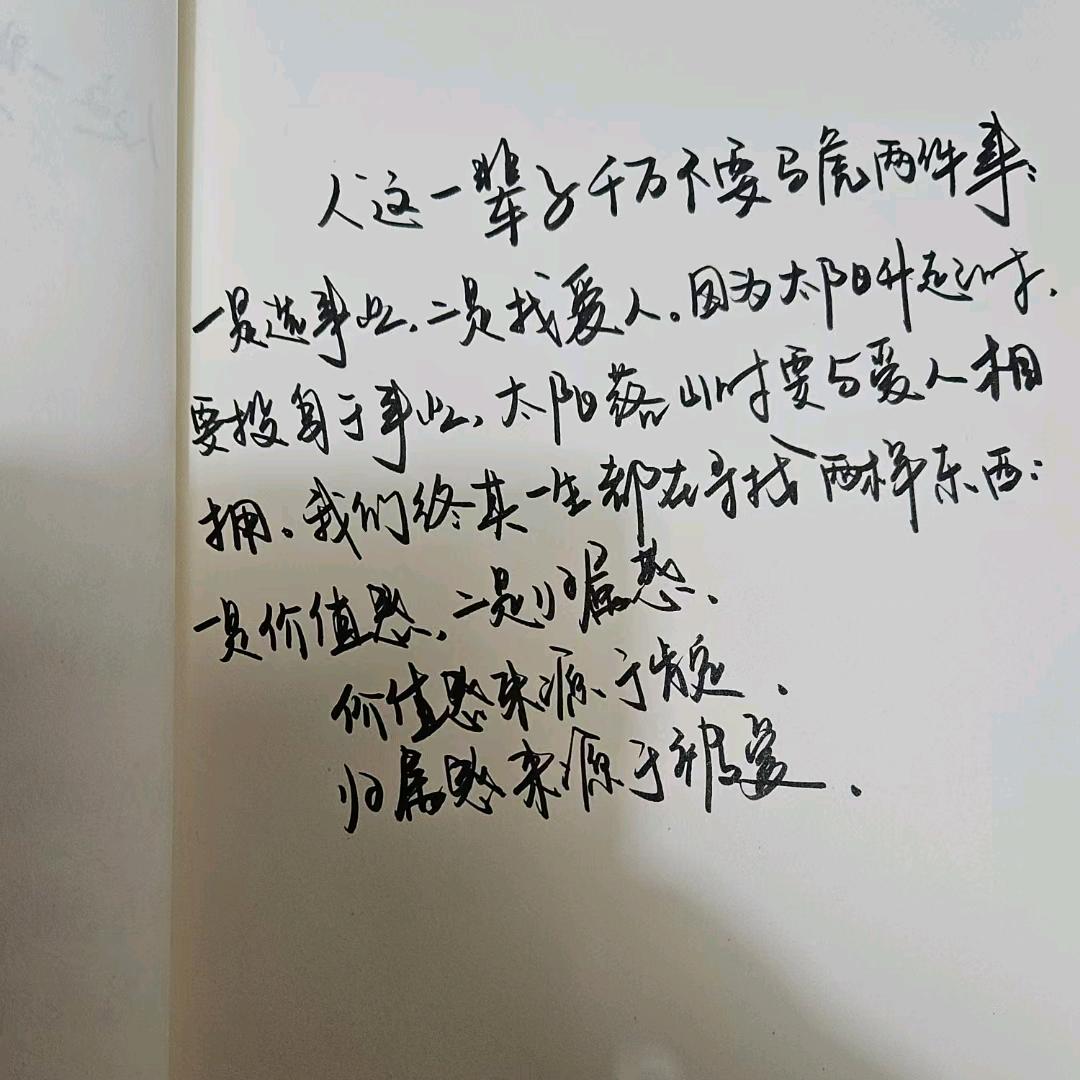 人这一辈子千万不要马虎两件事:
一是选事业,二是找爱人。因为太阳升起时,
要投身于事业,太阳落山时要与爱人相
拥。我们终其一生都在寻找两样东西:
一是价值感,二是归属感、
价值感来源于肯定.
归属感来源于被爱.